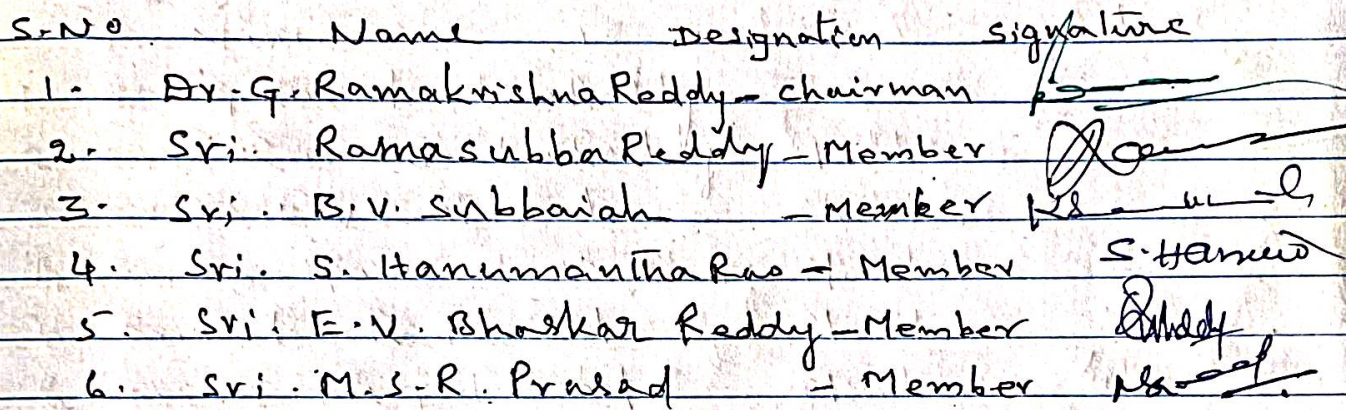 S.No Name Designation Signature
1. Dr. G. Ramakrishna Reddy - chairman
2. Sri. Ramasubba Reddy - Member
3. Sri. B.V. Subbaiah - Member
4. Sri. S. Hanumantha Rao - Member S. Hanum
5. Sri. E.V. Bhaskar Reddy - Member
6. Sri. M.S.R. Prasad - Member